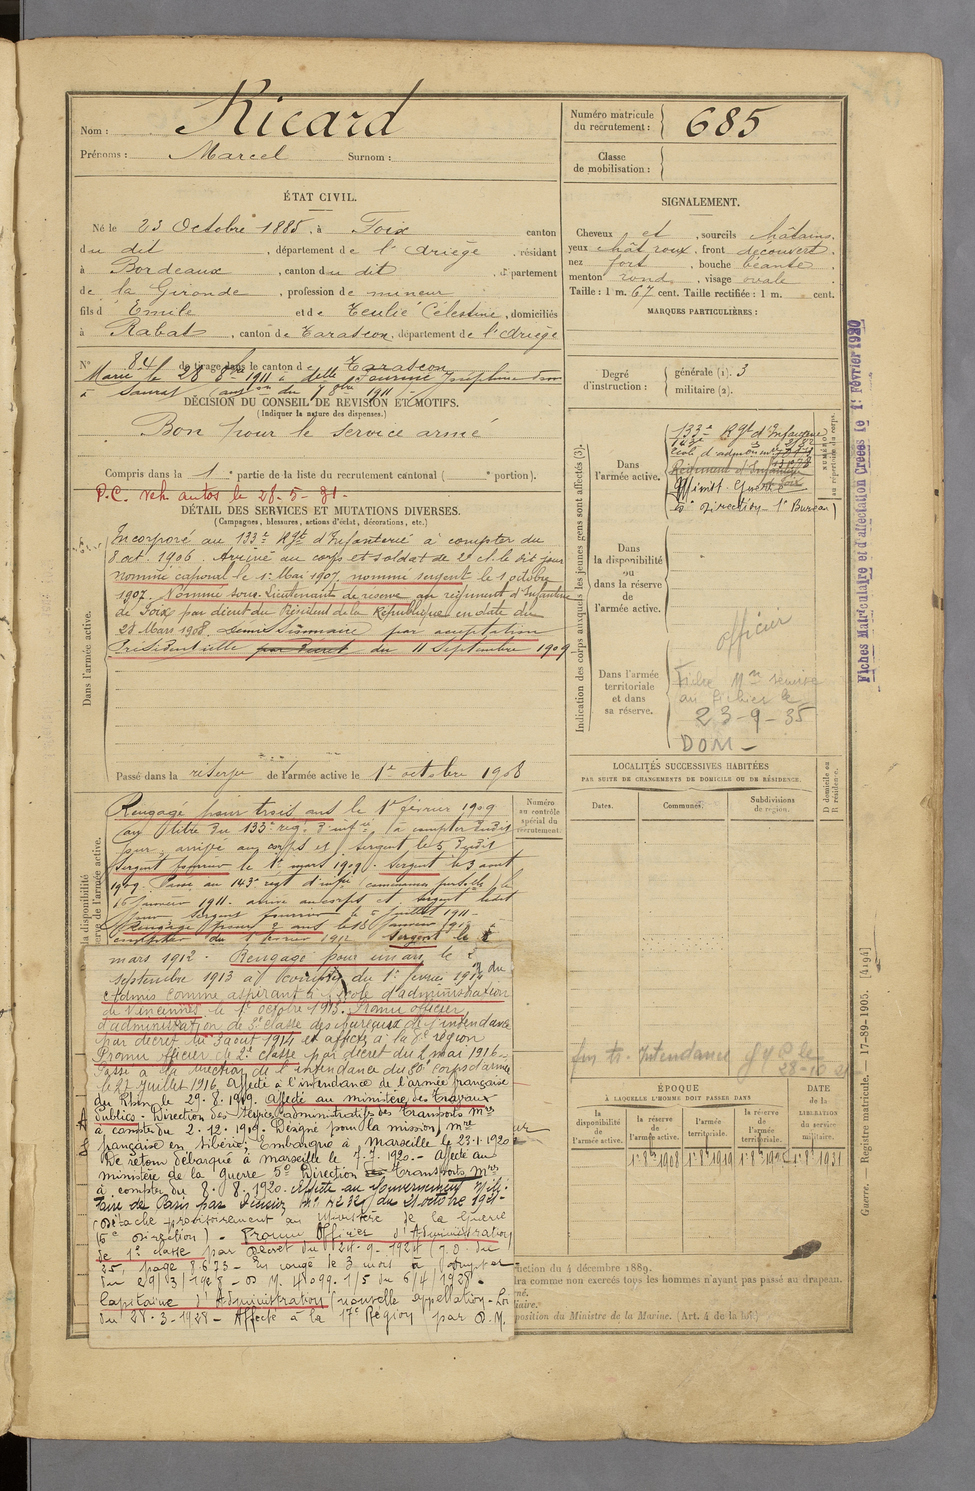 Nom : Ricard
Prénoms : Marcel Surnom :
Numéro matricule
du recrutement : 685
Classe
de mobilisation :
ÉTAT CIVIL.
Né le 23 Octobre 1885, à Foix canton
du dit, département de l'Ariège, résidant
à Bordeaux, canton du dit, département
de la Gironde, profession de mineur
fils d'Emile et de Teulié Célestine, domiciliés
à Rabat, canton de Tarascon, département de l'Ariège
N° 84 de tirage dans le canton de Tarascon
Marié le 28 8bre 1911 à delle Joséphine
à Saurat
DÉCISION DU CONSEIL DE RÉVISION ET MOTIFS.
(Indiquer la nature des dispenses.)
Bon pour le service armé
Compris dans la 1e partie de la liste du recrutement cantonal ( e portion).
P.C. veh. autos le 28-5-31.
SIGNALEMENT.
Cheveux et, sourcils châtains,
yeux chât. roux, front découvert,
nez fort, bouche béante,
menton rond, visage ovale
Taille : 1 m. 67 cent. Taille rectifiée : 1 m. cent.
MARQUES PARTICULIÈRES :
Degré
d'instruction :
générale (1). 3
militaire (2).
DÉTAIL DES SERVICES ET MUTATIONS DIVERSES.
(Campagnes, blessures, actions d'éclat, décorations, etc.)
Dans l'armée active.
Incorporé au 133e Rgt d'Infanterie à compter du
8 oct. 1906. Arrivé au corps et soldat de 2e cl. le dit jour
nommé caporal le 1er Mai 1907, nommé sergent le 1 octobre
1907. Nommé sous-Lieutenant de réserve au régiment d'Infanterie
de Foix par décret du Président de la République en date du
28 Mars 1908. Démissionnaire par acceptation
Présidentielle par Décret du 11 Septembre 1909
Passé dans la réserve de l'armée active le 1er octobre 1908
Rengagé pour trois ans le 1er février 1909
au titre du 133e rég. d'inf.ie, à compter dudit
jour, arrivé au corps et sergent le dudit
Sergent fourrier le 1er mars 1909. Sergent le 3 août
1909. Passé au 143e régt d'infie (convenances personnelles) le
16 janvier 1911. arrivé au corps et sergent ledit
jour sergent fourrier le 5 juillet 1911
Rengagé pour 2 ans le 18 janvier 1912 à
compter du 1 février 1912 sergent le
mars 1912. Rengagé pour un an le
septembre 1913 à compter du 1er février 1914
Admis comme aspirant à l'école d'administration
de Vincennes le 1er octobre 1913. Promu officier
d'administration de 3e classe des bureaux de l'intendance
par décret du 3 août 1914 et affecté à la région
Promu officier de 2e classe par décret du 2 mai 1916
Passé à la direction de l'intendance du 30e corps d'armée
le 27 juillet 1916. Affecté à l'intendance de l'armée française
du Rhin le 29.8.1919. Affecté au ministère des Travaux
Publics - Direction des Services administratifs des Transports Mres
à compter du 2.12.1919. Désigné pour la mission mre
française en Sibérie; Embarqué à Marseille le 23.1.1920
De retour débarqué à marseille le 7.7.1920. - Affecté au
ministère de la Guerre 5e Direction Transports Mres
à compter du 8.8.1920. Affecté au Gouvernement Mili-
taire de Paris par Décision du octobre 1921
(Détaché provisoirement au Ministère de la Guerre
Direction) - Promu Officier d'Administration
de 1e classe par décret du 24-9-1924 (J.O. du
25, page 8673 - En congé de 3 mois à compter
du 29/3/1928 - D.M. 4099.1/5 du 6/4/1928.
Capitaine d'Administration (nouvelle appellation - Loi
du 28-3-1928 - Affecté à la 17e Région par D.M.
Indication des corps auxquels les jeunes gens sont affectés (3).
Dans
l'armée active.
133e Rgt d'Infanterie
143e
école d'admon
Régiment d'Infanterie
de Foix
Minist. Guerre
Direction - 1er Bureau
Dans
la disponibilité
ou
dans la réserve
de
l'armée active.
Dans l'armée
territoriale
et dans
sa réserve.
officier
Fiche Mle remise
au fichier le
23-9-35
DOM -
Fiches Matriculaire et d'affectation Créées le 1er Février 1930
LOCALITÉS SUCCESSIVES HABITÉES
PAR SUITE DE CHANGEMENTS DE DOMICILE OU DE RÉSIDENCE.
Dates. Communes. Subdivisions
de région.
D domicile ou
R résidence.
Numéro
au contrôle
spécial du
recrutement.
Intendance
28-10
ÉPOQUE
À LAQUELLE L'HOMME DOIT PASSER DANS
la
disponibilité
de
l'armée active.
la réserve
de
l'armée active.
l'armée
territoriale.
la réserve
de
l'armée
territoriale.
DATE
de la
LIBÉRATION
du service
militaire.
1er 8bre 1908 1er 8bre 1919 1er 8bre 1925 1er 8bre 1931
du 4 décembre 1889.
comme non exercés tous les hommes n'ayant pas passé au drapeau.
position du Ministre de la Marine. (Art. 4 de la loi)
Guerre. — Registre matricule. — 17-89-1905. [4194]